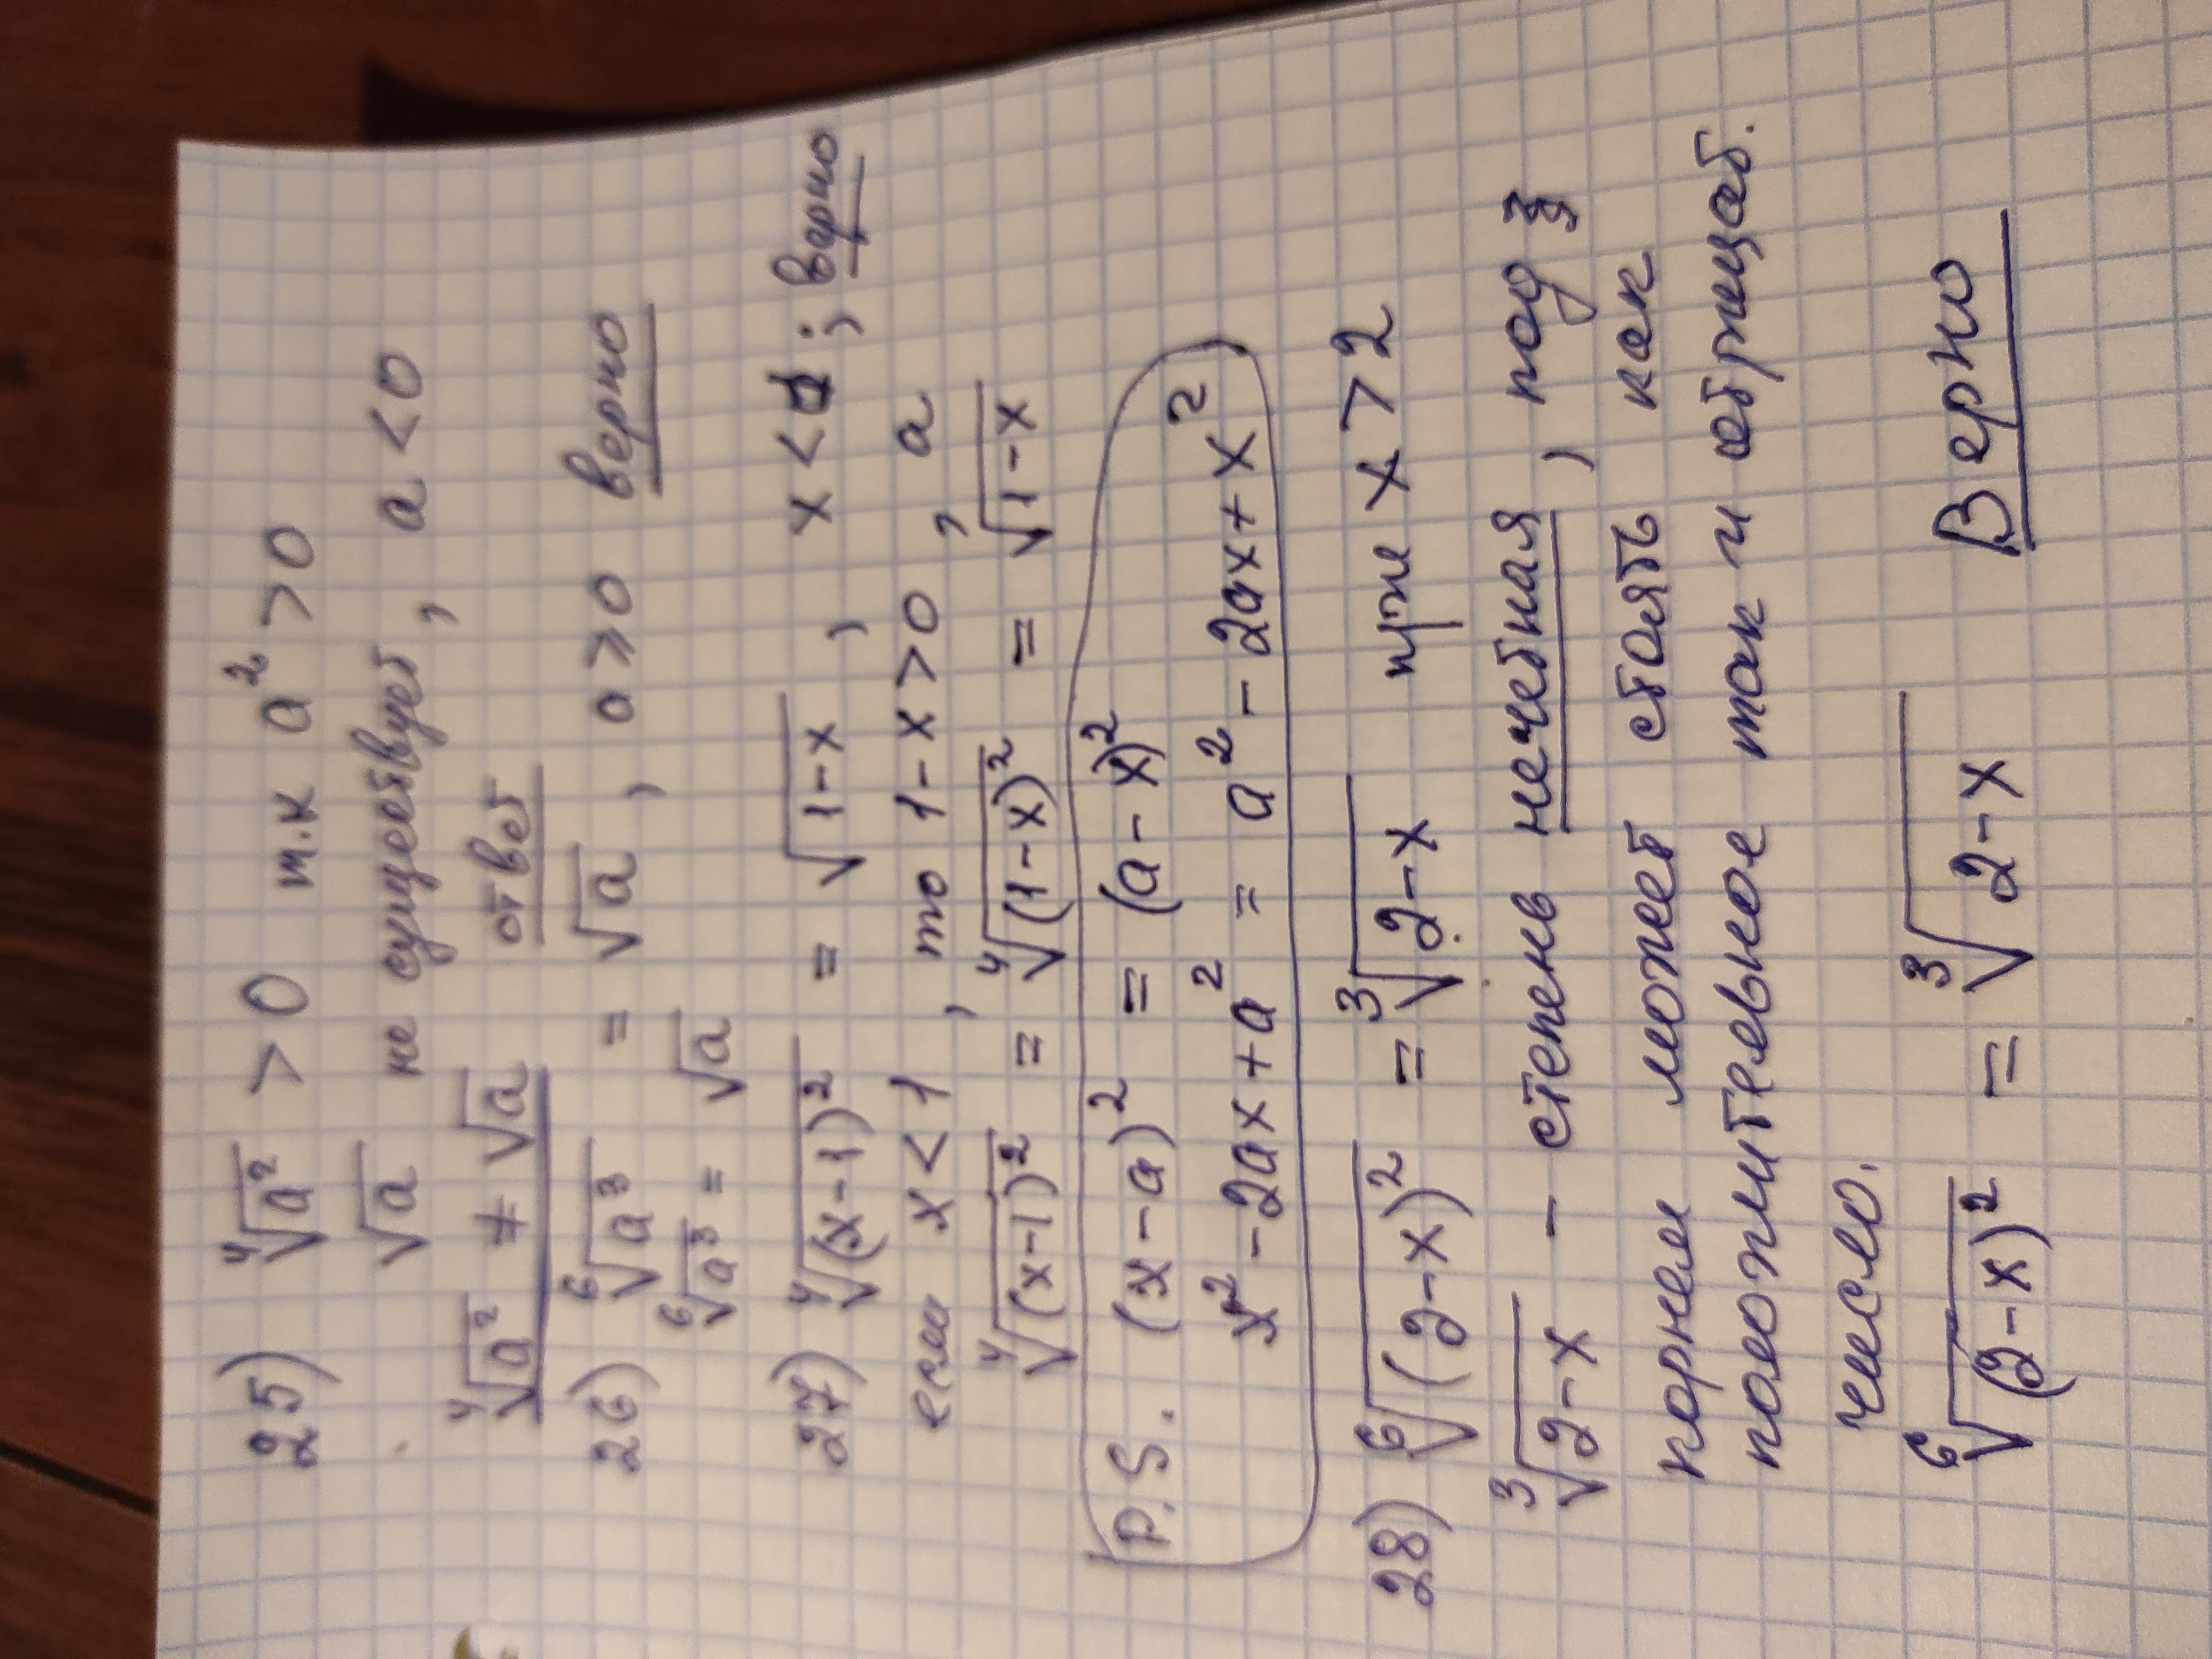 25) ⁴√a² > 0 т.к a² > 0
√a не существует, a < 0
⁴√a² ≠ √a ответ
26) ⁶√a³ = √a, a ⩾ 0 верно
⁶√a³ = √a
27) ⁴√(x-1)² = √1-x, x < 1; верно
если x < 1, то 1-x > 0, а
⁴√(x-1)² = ⁴√(1-x)² = √1-x
P.S. (x-a)² = (a-x)²
x² - 2ax + a² = a² - 2ax + x²
28) ⁶√(2-x)² = ³√2-x при x > 2
³√2-x - степень нечетная, под
корнем может стоять как
положительное так и отрицат.
число.
⁶√(2-x)² = ³√2-x Верно